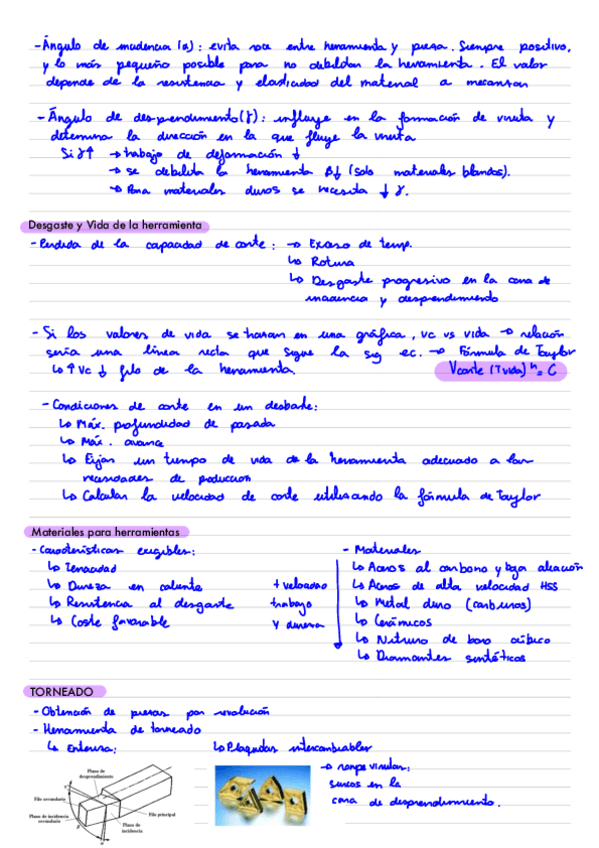 - Ángulo de incidencia (α): evita roce entre herramienta y pieza. Siempre positivo,
y lo más pequeño posible para no debilitar la herramienta. El valor
depende de la resistencia y elasticidad del material a mecanizar
- Ángulo de desprendimiento (γ): influye en la formación de viruta y
determina la dirección en la que fluye la viruta
Si γ↑ → trabajo de deformación ↓
→ se debilita la herramienta β↓ (solo materiales blandos).
→ Para materiales duros se necesita ↓ γ.
Desgaste y Vida de la herramienta
- Perdida de la capacidad de corte: → Exceso de temp.
↳ Rotura
↳ Desgaste progresivo en la cara de
incidencia y desprendimiento
- Si los valores de vida se trazan en una gráfica, vc vs vida → relación
sería una línea recta que sigue la sig ec. → Fórmula de Taylor
↳ ↑ Vc ↓ filo de la herramienta. Vcorte (Tvida)ⁿ = C
- Condiciones de corte en un desbaste:
↳ Máx. profundidad de pasada
↳ Máx. avance
↳ Fijar un tiempo de vida de la herramienta adecuado a las
necesidades de produccion
↳ Calcular la velocidad de corte utilizando la fórmula de Taylor
Materiales para herramientas
- Características exigibles: - Materiales
↳ Tenacidad ↳ Aceros al carbono y baja aleación
↳ Dureza en caliente + velocidad ↳ Aceros de alta velocidad HSS
↳ Resistencia al desgaste trabajo ↳ Metal duro (carburos)
↳ Coste favorable y dureza ↳ Cerámicos
↳ Nitruro de boro cúbico
↳ Diamantes sintéticos
TORNEADO
- Obtención de piezas por revolución
- Herramienta de torneado
↳ Enteriza: ↳ Plaquitas intercambiables
→ rompevirutas:
surcos en la
cara de desprendimiento.
Plano de
desprendimiento
Filo secundario
Plano de incidencia
secundario
Filo principal
Plano de
incidencia